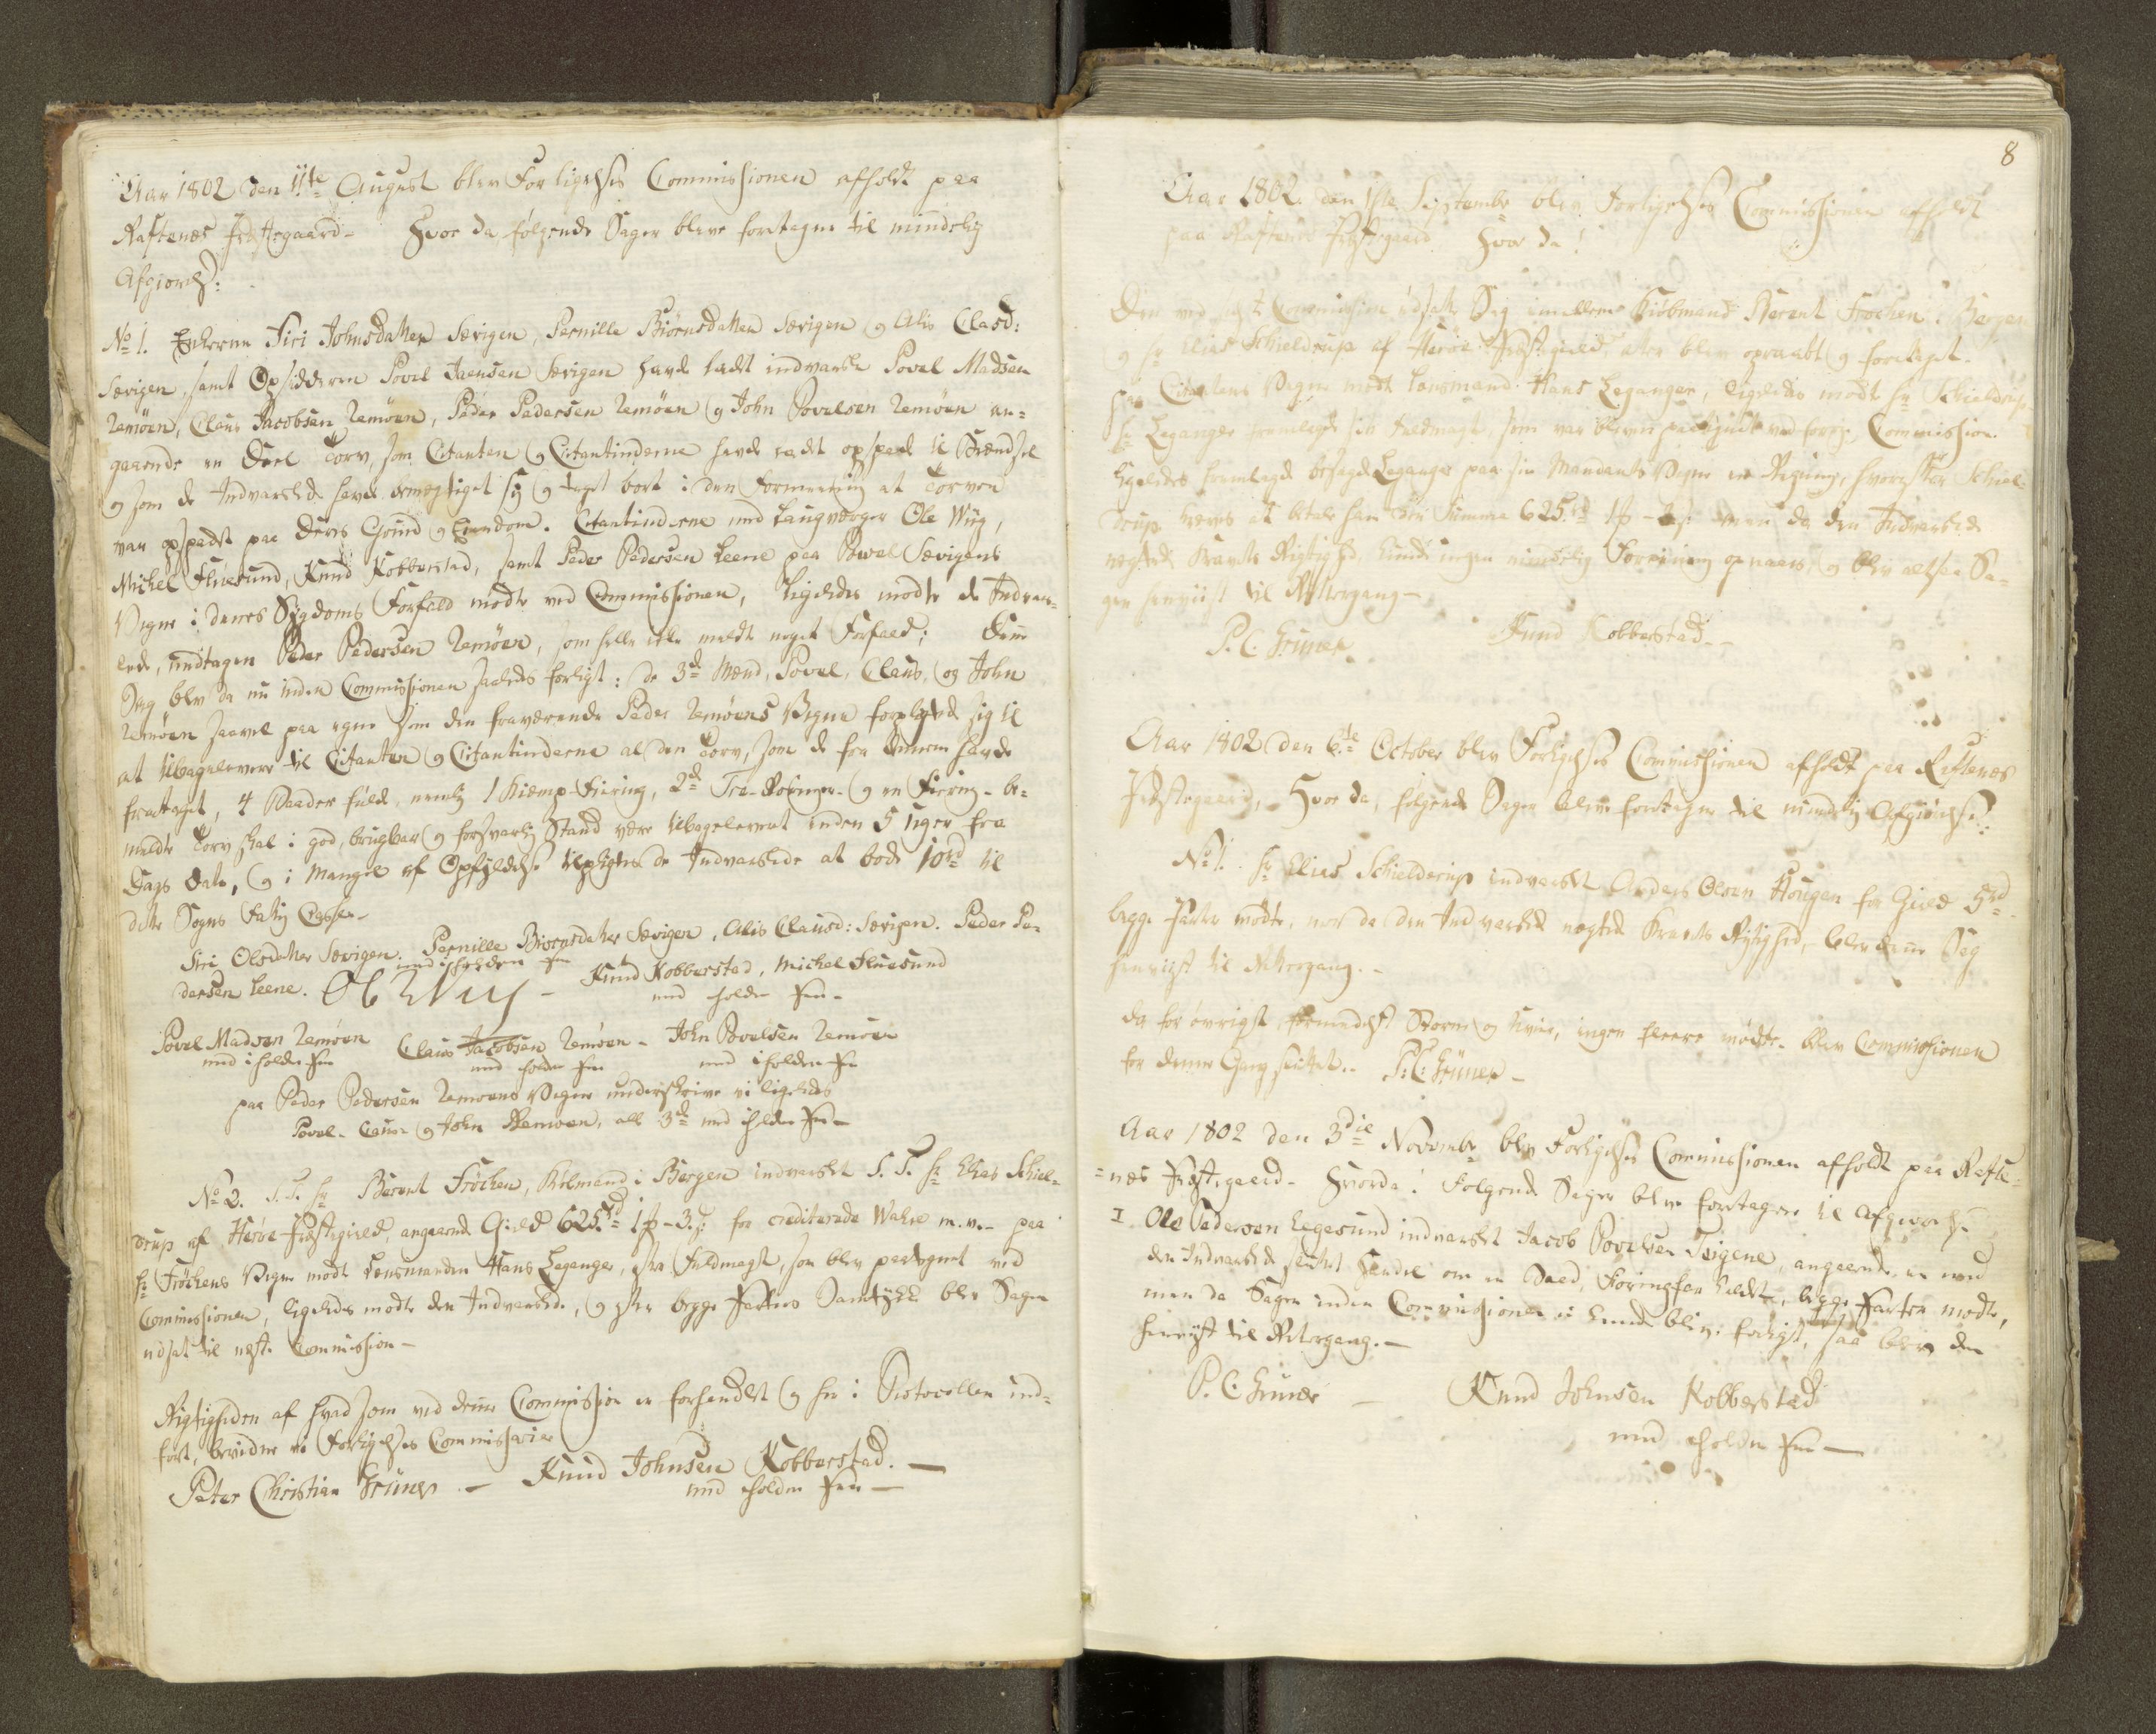 Aar 1802 den 11te August blev Forligelses Commissionen afholdt paa
Raftenæs Præstegaard - Hvor da følgende Sager bleve foretagne til mindelig
Afgiørelse:
No 1. Enkerne Siri Johnsdatter Sævigen, Pernille Biørnsdatter Sævigen og Alis Clausd:
Sævigen, samt Opsidderen Povel Jaensen Sævigen havde ladt indvarsle Povel Madsen
Remøen, Claus Jacobsen Remøen, Peder Pedersen Remøen og John Povelsen Remøen an-
gaaende en Deel Torv, som Citanten og Citantinderne havde ladt opspade til Brændsel
og som de Indvarslede havde bemægtiget sig og taget bort i den Formeening at Torven
var opspadt paa deres Grund og Eiendom. Citantinderne med Laugværger Ole Wiig,
Michel Fluesund, Knud Kobberstad, samt Peder Pedersen Leene paa Povel Sævigens
Vegne i dennes Sygdoms Forfald mødte ved Commissionen, ligeledes mødte de Indvars-
lede, undtagen Peder Pedersen Remøen, som heller ikke meldte noget Forfald; Denne
Sag blev da nu inden Commissionen saaledes forligt: de 3de Mænd, Povel, Claus, og John
Remøen saavel paa egne som den fraværende Peder Remøens Vegne forpligted sig til
at tilbagelevere til Citanten og Citantinderne al den Torv, som de fra dennem havde
fratagt, 4 Baader fulde, nemlig 1 Kiemp-Fiiring, 2de Tre-Roringer og en Fiiring - be-
meldte Torv skal i god, brugbar og forsvarlig Stand være tilbageleveret inden 5 Uger fra
Dags Dato, og i Mangel af Opfyldelse tilpligtes de Indvarslede at bøde 10rd til
dette Sogns Fattig Casse -
Siri Olsdatter Sævigen. Pernille Biørnsdatter Sævigen, Alis Clausd: Sævigen. Peder Pe-
med iholden Pen
dersen Leene. Ole Wiig - Knud Kobberstad, Michel Fluesund
med iholden Pen -
Povel Madsen Remøen Claus Jacobsen Remøen - John Povelsen Remøen
med iholden Pen med iholden Pen med iholden Pen
paa Peder Pedersen Remøens Vegne underskrive vi ligeledes
Povel - Claus - og John Remøen, alle 3de med iholden Pen -
No 2. S. T. Hr Berent Frøchen, Kiøbmand i Bergen indvarslet S. T. Hr Elias Schiel-
derup af Herøe Præstegield, angaaende Gield 625rd 1 - 3 s: for crediterede Wahre m.v. - paa
Hr Frøchens Vegne mødte Lensmanden Hans Leganger, efter Fuldmagt, som blev paategnet ved
Commissionen, ligeledes mødte den Indvarslede, og efter begge Parters Samtykke blev Sagen
udsat til næste Commission -
Rigtigheden af hvad som ved denne Commission er forhandlet og her i Protocollen ind-
ført, bevidne vi Forligelses Commissarier
Peter Christian Grüner - Knud Johnsen Kobberstad. -
med iholden Pen -
8
Aar 1802. den 1ste Septembr blev Forligelses Commissionen afholdt
paa Raftenæs Præstegaard Hvor da!
Den ved sidste Commission udsatte Sag imellem Kiøbmand Berent Frøchen i Bergen
og Hr Elias Schielderup af Herøe Præstegield, atter blev opraabt og foretaget.
Paa Citantens Vegne mødte Lensmand Hans Leganger, ligeledes mødte Hr Schielderup
Hr Leganger fremlagde sin Fuldmagt, som var bleven paategnet ved forrige Commission.
Ligeledes fremlagde besagde Leganger paa sin Mandants Vegne en Regning, hvorefter Schiel-
derup kræves at betale ham Summa 625rd men da den Indvarslede
negtede Kravets Rigtighed kunde ingen mindelig Forening opnaaes, og blev altsaa Sa-
gen henviist til Rettergang -
P. C. Grüner Knud Kobberstad -
Aar 1802 den 6te October blev Forligelses Commissionen afholdt paa Raftenæs
Præstegaard, Hvor da, følgende Sager bleve foretagne til mindelig Afgiørelse:
No 1. - Hr Elias Schielderup indvarslet Anders Olsen Hougen for Gield 5rd.
begge Parter mødte, men da den Indvarslede negted Kravets Rigtighed, blev denne Sag
henviist til Rettergang. -
da for øvrigt formedelst Storm og Uveir, ingen fleere mødte - blev Commissionen
for denne Gang sluttet. - P: C: Grüner -
Aar 1802 den 3die Novembr blev Forligelses Commissionen afholdt paa Rafte-
=næs Præstegaard - Hvor da! Følgende Sager bleve foretagne til Afgiørelse
I Ole Pedersen Eegesund indvarslet Jacob Povelsen Teigene, angaaende en med
den Indvarslede sluttet Handel om en Baad, begge Parter mødte,
men da Sagen inden Commissionen ei kunde blive forligt, saa blev den
henviist til Rettergang. -
P. C. Grüner - Knud Johnsen Kobberstad
med iholden Pen -